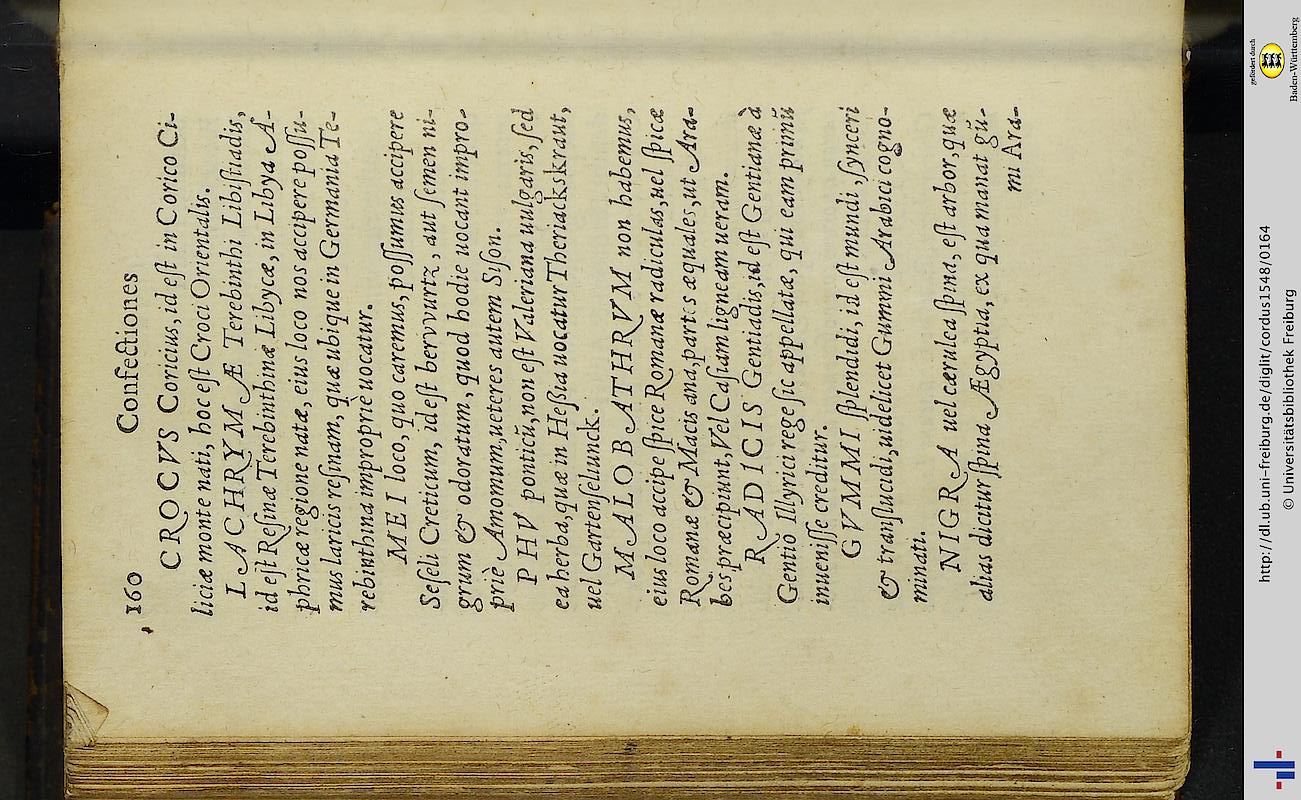 160 Confectiones
CROCVS Coricius, id est in Corico Ci-
liciæ monte nati, hoc est Croci Orientalis.
LACHRYMÆ Terebinthi Libistiadis,
id est Resinæ Terebinthinæ Libycæ, in Libya A-
phricæ regione natæ, eius loco nos accipere possu-
mus laricis resinam, quæ ubique in Germania Te-
rebinthina impropriè uocatur.
MEI loco, quo caremus, possumus accipere
Seseli Creticum, id est bervvurtz, aut semen ni-
grum & odoratum, quod hodie uocant impro-
priè Amomum, ueteres autem Sison.
PHV ponticū, non est Valeriana uulgaris, sed
ea herba, quæ in Heßia uocatur Theriackskraut,
uel Gartenseliunck.
MALOBATHRVM non habemus,
eius loco accipe spicæ Romanæ radiculas, uel spicæ
Romanæ & Macis ana, partes æquales, ut Ara-
bes præcipiunt, Vel Casiam ligneam ueram.
RADICIS Gentiadis, id est Gentianæ à
Gentio Illyrici rege sic appellatæ, qui eam primū
inuenisse creditur.
GVMMI splendidi, id est mundi, synceri
& translucidi, uidelicet Gummi Arabici cogno-
minati.
NIGRA uel cærulea spina, est arbor, quæ
alias dicatur spina Ægyptia, ex qua manat gū-
mi Ara-
gefördert durch
Baden-Württemberg
http://dl.ub.uni-freiburg.de/diglit/cordus1548/0164
© Universitätsbibliothek Freiburg